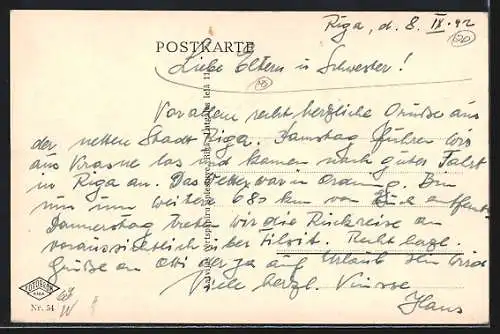 Riga, d. 8. IX. 42
POSTKARTE
Liebe Eltern u Schwester!
Vor allem recht herzliche Grüße aus
der netten Stadt Riga. Samstag fuhren wir
aus Krasne los und kamen nach guter Fahrt
in Riga an. Das Wetter war in Ordnung. Bin
nun nun weitere 680 km von Euch entfernt.
Donnerstag treten wir die Rückreise an
voraussichtlich über Tilsit. Recht herzl.
Grüße an Otti der ja auf Urlaub sein wird
Viele herzl. Küsse
Hans
FOTOBROM
RIGA
Nr. 54